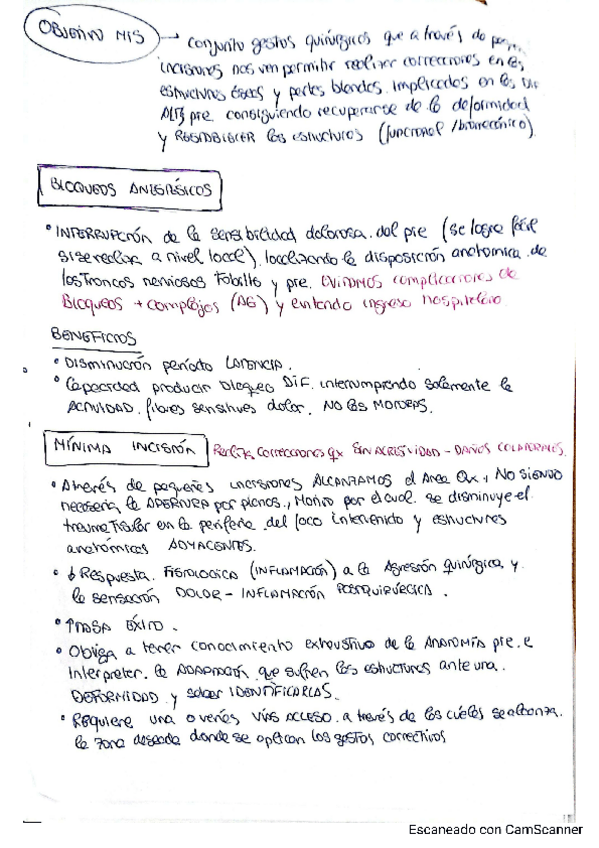 OBJETIVO MIS → conjunto gestos quirúrgicos que a través de peq
incisiones nos van permitir realizar correcciones en las
estructuras óseas y partes blandas implicadas en las
ALT pie consiguiendo recuperarse de la deformidad
y RESTABLECER las estructuras (funcional / biomecánico)
BLOQUEOS ANESTÉSICOS
• INTERRUPCIÓN de la sensibilidad dolorosa del pie (se logra fácil
si se realiza a nivel local), localizando la disposición anatómica de
los troncos nerviosos tobillo y pie. EVITAMOS complicaciones de
Bloqueos + complejos (AG) y evitando ingreso hospitalario.
BENEFICIOS
• DISMINUCIÓN período LATENCIA.
• Capacidad producir bloqueo DIF. interrumpiendo solamente la
ACTIVIDAD fibras sensitivas dolor. NO las MOTORAS.
MÍNIMA INCISIÓN Realiza correcciones qx SIN AGRESIVIDAD - DAÑOS COLATERALES.
• A través de pequeñas INCISIONES ALCANZAMOS el Area Qx, NO SIENDO
necesaria la APERTURA por planos, MOTIVO por el cual se disminuye el
trauma tisular en la periferia del foco intervenido y estructuras
anatómicas ADYACENTES.
• ↓ Respuesta FISIOLOGICA (INFLAMACIÓN) a la Agresión quirúrgica y
la sensación DOLOR - INFLAMACIÓN POSTQUIRÚRGICA.
• ↑ TASA ÉXITO.
• Obliga a tener conocimiento exhaustivo de la ANATOMÍA pie e
Interpretar la ADAPTACIÓN que sufren las estructuras ante una
DEFORMIDAD y saber IDENTIFICARLAS.
• Requiere una o varias VÍAS ACCESO a través de las cuales se alcanza
la zona deseada donde se aplican los gestos correctivos
Escaneado con CamScanner